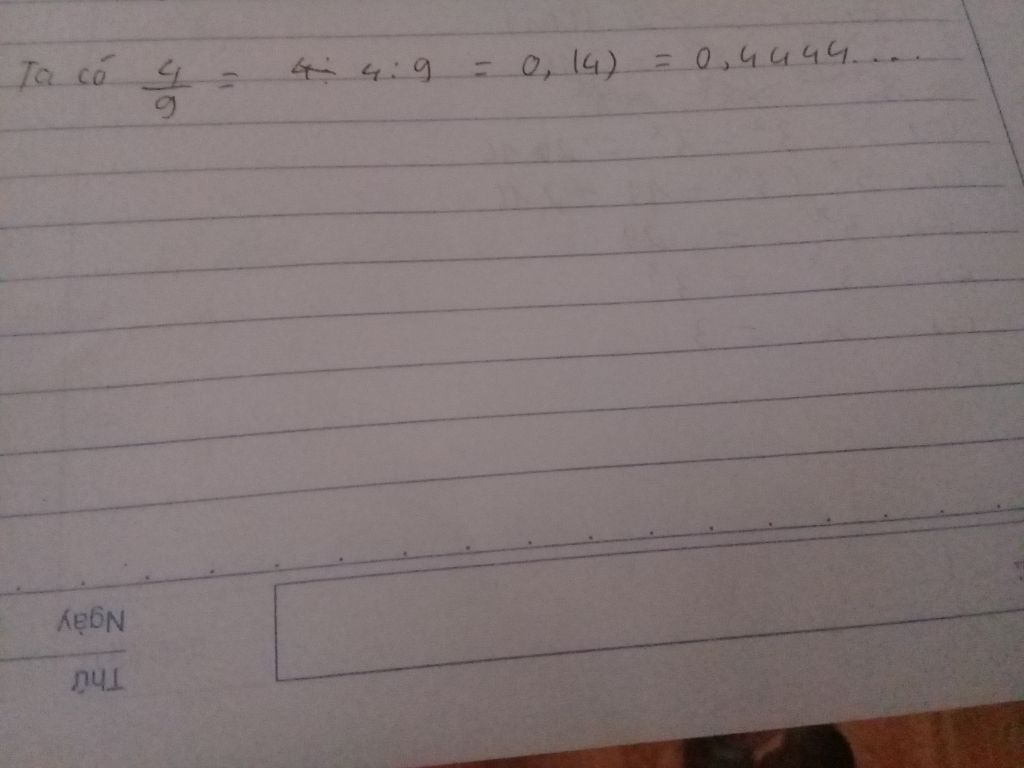 Ta có 4/9 = 4: 4:9 = 0,(4) = 0,4444....
Ngày
Thứ